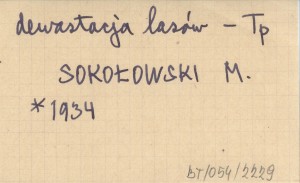 dewastacja lasów - Tp
SOKOŁOWSKI M.
*1934
DT/054/2229